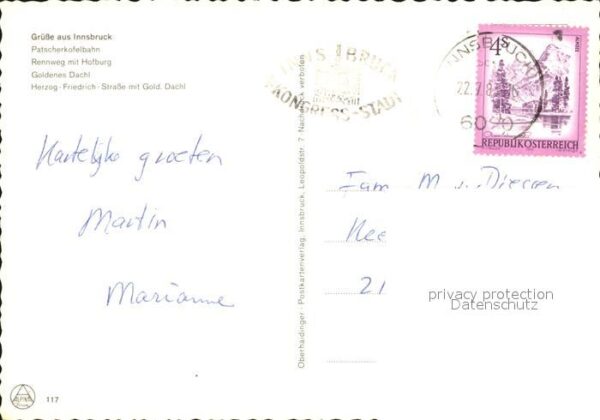 Grüße aus Innsbruck
Patscherkofelbahn
Rennweg mit Hofburg
Goldenes Dachl
Herzog-Friedrich-Straße mit Gold. Dachl
Hartelijke groeten
Martin
Marianne
117
Oberhaidinger-Postkartenverlag, Innsbruck, Leopoldstr. 7 Nachdruck verboten
INNSBRUCK
KONGRESS-STADT
INNSBRUCK
22.7.8
6020
4
REPUBLIK ÖSTERREICH
Fam M v. Diessen
21
privacy protection
Datenschutz